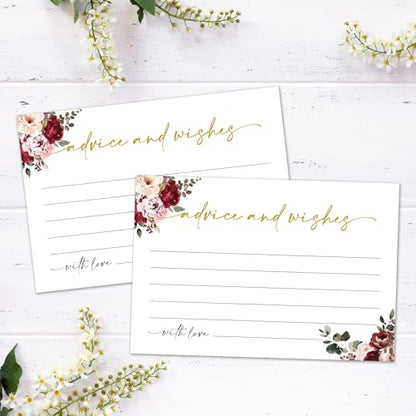 advice and wishes
with love
advice and wishes
with love